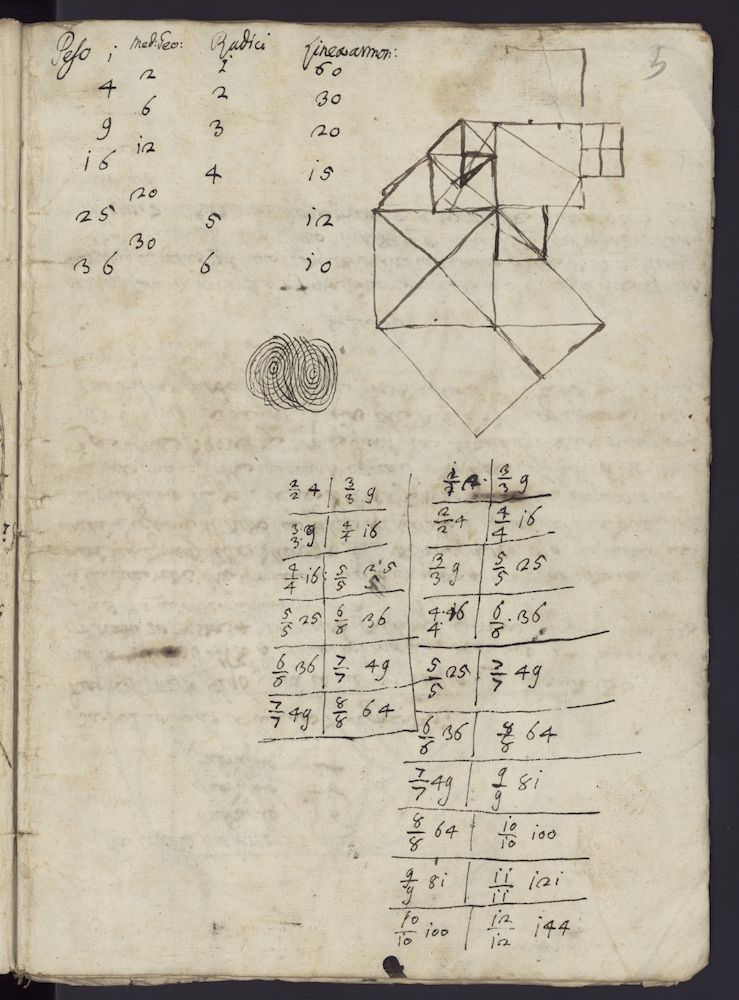 Peso Med: Geo: Radici Linea armon:
i i 60
2
4 2 30
6
9 3 20
i2
i6 4 i5
20
25 5 i2
30
36 6 i0
5
2/2 4 | 3/3 9
3/3 9 | 4/4 i6
4/4 i6 | 5/5 25
5/5 25 | 6/6 36
6/6 36 | 7/7 49
7/7 49 | 8/8 64
3/3 9
2/2 4 | 4/4 i6
3/3 9 | 5/5 25
4/4 i6 | 6/6 36
5/5 25 | 7/7 49
6/6 36 | 8/8 64
7/7 49 | 9/9 8i
8/8 64 | i0/i0 i00
9/9 8i | ii/ii i2i
i0/i0 i00 | i2/i2 i44